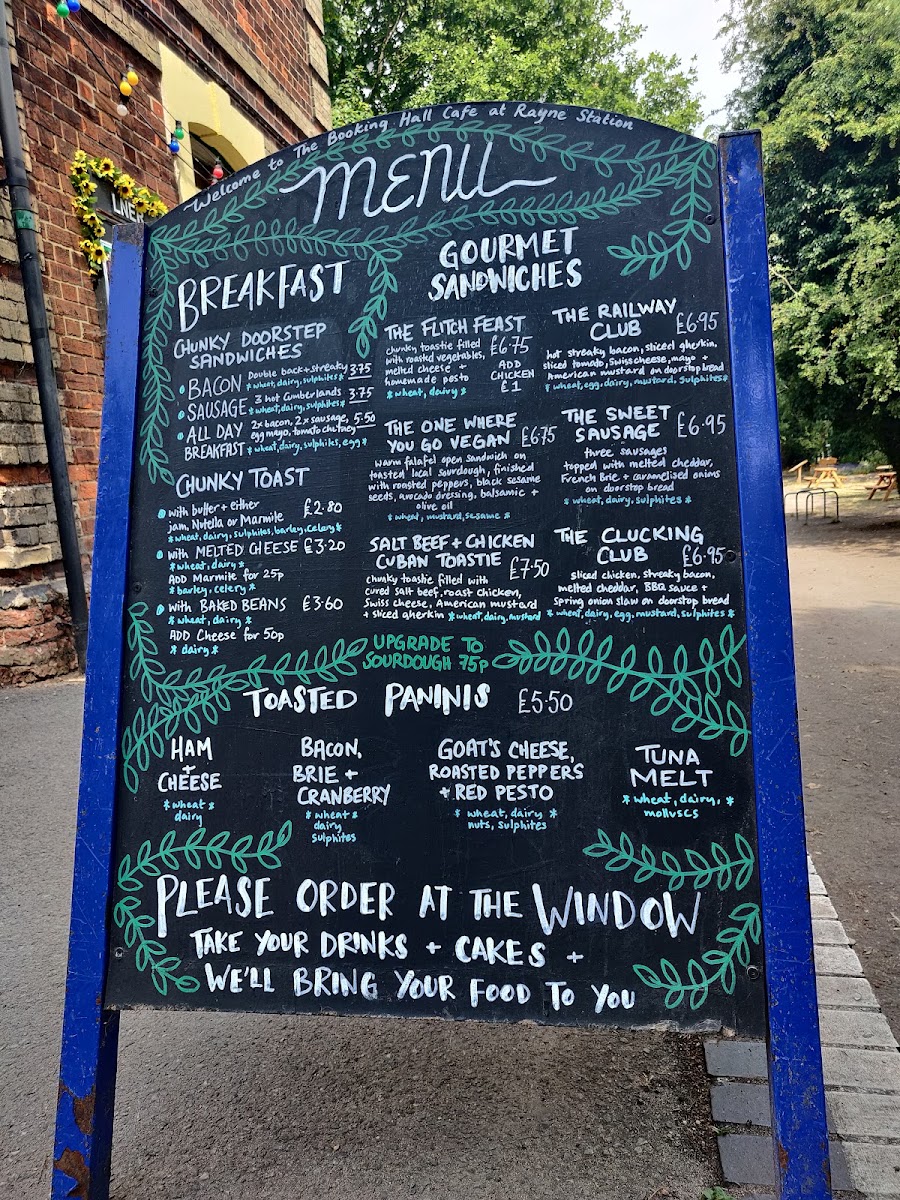 Welcome to The Booking Hall Cafe at Rayne Station
MENU
BREAKFAST
CHUNKY DOORSTEP
SANDWICHES
BACON Double back+streaky 3.75
*wheat, dairy, sulphites*
SAUSAGE 3 hot Cumberlands 3.75
*wheat, dairy, sulphites*
ALL DAY BREAKFAST 2x bacon, 2x sausage, 5.50
egg mayo, tomato chutney
*wheat, dairy, sulphites, egg*
CHUNKY TOAST
with butter + either £2.80
jam, Nutella or Marmite
*wheat, dairy, sulphites, barley, celery*
with MELTED CHEESE £3.20
*wheat, dairy*
ADD Marmite for 25p
*barley, celery*
with BAKED BEANS £3.60
*wheat, dairy*
ADD Cheese for 50p
*dairy*
GOURMET
SANDWICHES
THE FLITCH FEAST
chunky toastie filled £6.75
with roasted vegetables,
melted cheese +
homemade pesto
ADD
CHICKEN
£1
*wheat, dairy*
THE ONE WHERE
YOU GO VEGAN £6.75
warm falafel open sandwich on
toasted local sourdough, finished
with roasted peppers, black sesame
seeds, avocado dressing, balsamic +
olive oil
*wheat, mustard, sesame*
SALT BEEF + CHICKEN
CUBAN TOASTIE £7.50
chunky toastie filled with
cured salt beef, roast chicken,
Swiss cheese, American mustard
+ sliced gherkin *wheat, dairy, mustard
THE RAILWAY
CLUB £6.95
hot streaky bacon, sliced gherkin,
sliced tomato, Swiss cheese, mayo +
American mustard on doorstep bread
*wheat, egg, dairy, mustard, sulphites*
THE SWEET
SAUSAGE £6.95
three sausages
topped with melted cheddar,
French Brie + caramelised onions
on doorstep bread
*wheat, dairy, sulphites*
THE CLUCKING
CLUB £6.95
sliced chicken, streaky bacon,
melted cheddar, BBQ sauce +
spring onion slaw on doorstep bread
*wheat, dairy, egg, mustard, sulphites*
UPGRADE TO
SOURDOUGH 75p
TOASTED PANINIS £5.50
HAM
+
CHEESE
*wheat*
dairy
BACON,
BRIE +
CRANBERRY
*wheat*
dairy
sulphites
GOAT'S CHEESE,
ROASTED PEPPERS
+ RED PESTO
*wheat, dairy*
nuts, sulphites
TUNA
MELT
*wheat, dairy,*
molluscs
PLEASE ORDER AT THE WINDOW
TAKE YOUR DRINKS + CAKES +
WE'LL BRING YOUR FOOD TO YOU